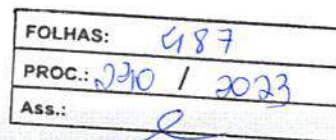 FOLHAS: 487
PROC.: 290 / 2023
Ass.: